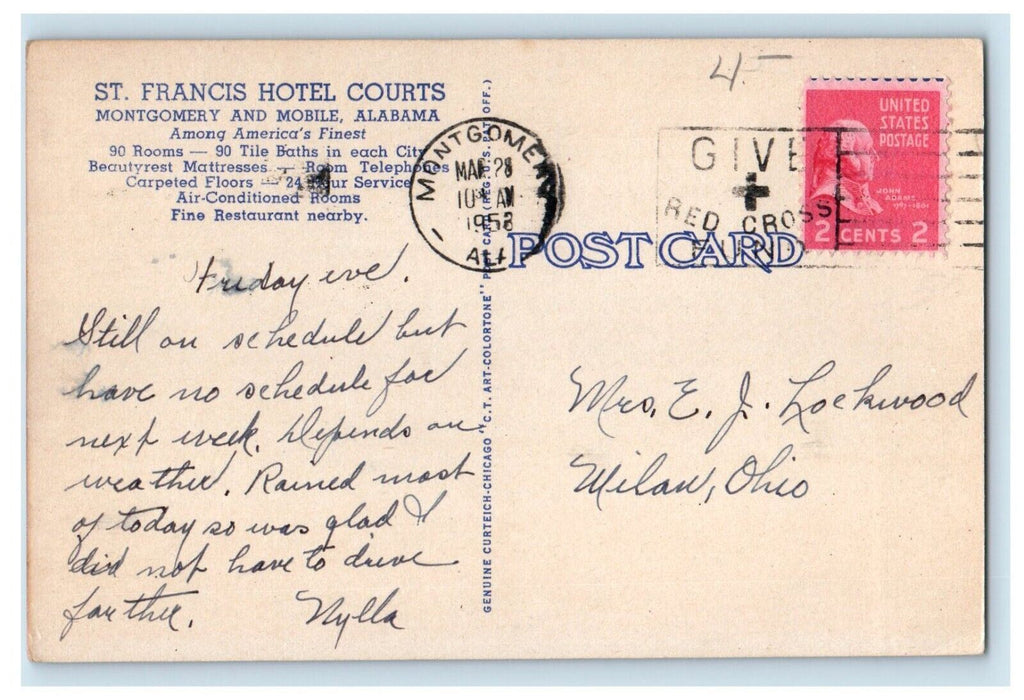 4.-
ST. FRANCIS HOTEL COURTS
MONTGOMERY AND MOBILE, ALABAMA
Among America's Finest
90 Rooms — 90 Tile Baths in each City
Beautyrest Mattresses — Room Telephones
Carpeted Floors — 24 Hour Service
Air-Conditioned Rooms
Fine Restaurant nearby.
Friday eve.
Still on schedule but
have no schedule for
next week. Depends on
weather. Rained most
of today so was glad I
did not have to drive
farther. Nylla
GENUINE CURTEICH-CHICAGO "C.T. ART-COLORTONE" POST CARD (REG. U.S. PAT. OFF.)
MONTGOMERY
MAR 28
10 AM
1953
ALA
POST CARD
GIVE
RED CROSS
FUND
UNITED
STATES
POSTAGE
JOHN
ADAMS
1797-1801
2 CENTS 2
Mrs. E. J. Lockwood
Milan, Ohio